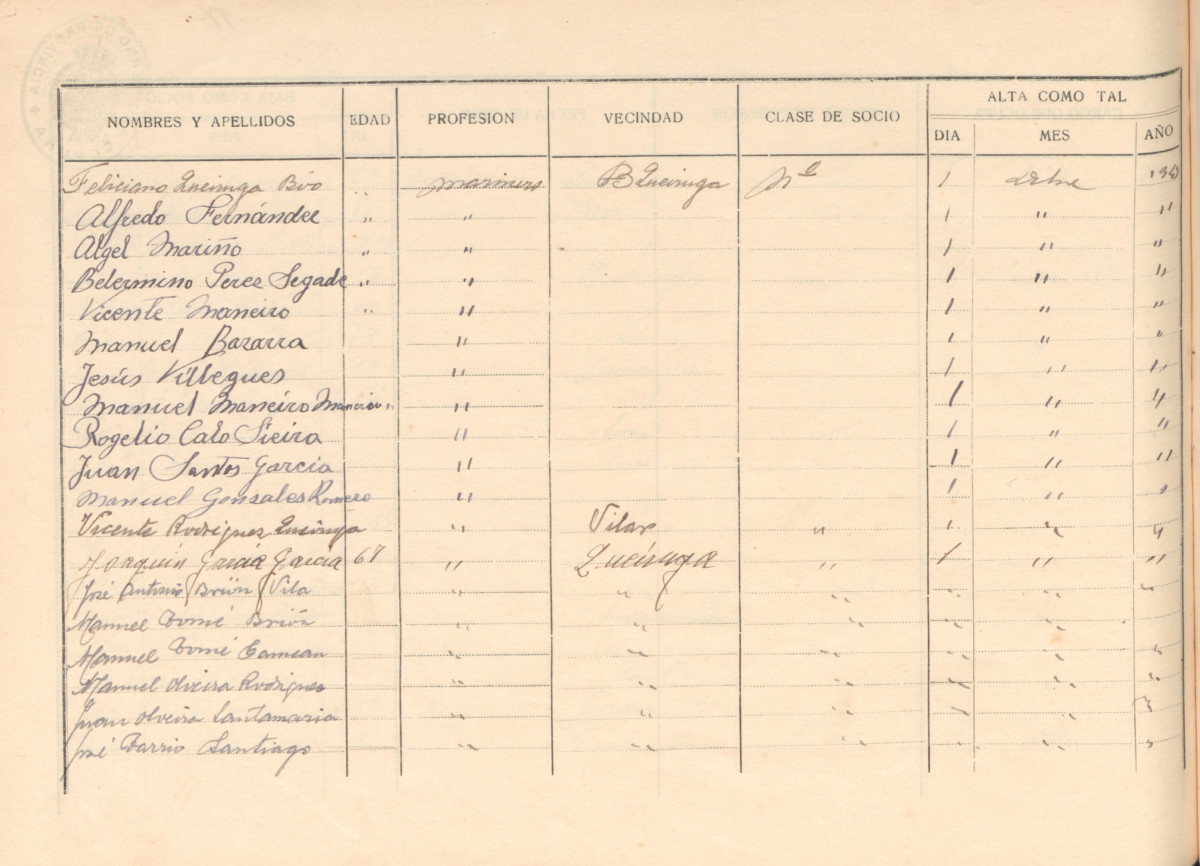 ALTA COMO TAL
NOMBRES Y APELLIDOS EDAD PROFESION VECINDAD CLASE DE SOCIO DIA MES AÑO
Feliciano Queiruga Bvo " marinero B Queiruga Nº 1
Alfredo Fernández " " 1 " "
Algel Mariño " " 1 " "
Belermino Perez Segade " " 1 " "
Vicente Maneiro " " 1 " "
Manuel Bazarra " 1 " "
Jesús Villegues " 1 " "
Manuel Maneiro Maneiro " " 1 " "
Rogelio Calo Sieira " 1 " "
Juan Santos Garcia " 1 " "
Manuel Gonzales Romero " 1 " "
Vicente Rodriguez Queiruga " Vilar " 1 " "
Joaquin Garcia Garcia 67 " Queiruga " 1 " "
José Antonio Brión Vila " " " " " "
Manuel Tomé Brión " " " " " "
Manuel Tomé Camean " " " " " "
Manuel Oveira Rodriguez " " " " " "
Juan Olveira Santamaria " " " " " "
José Barrio Santiago " " " " " "